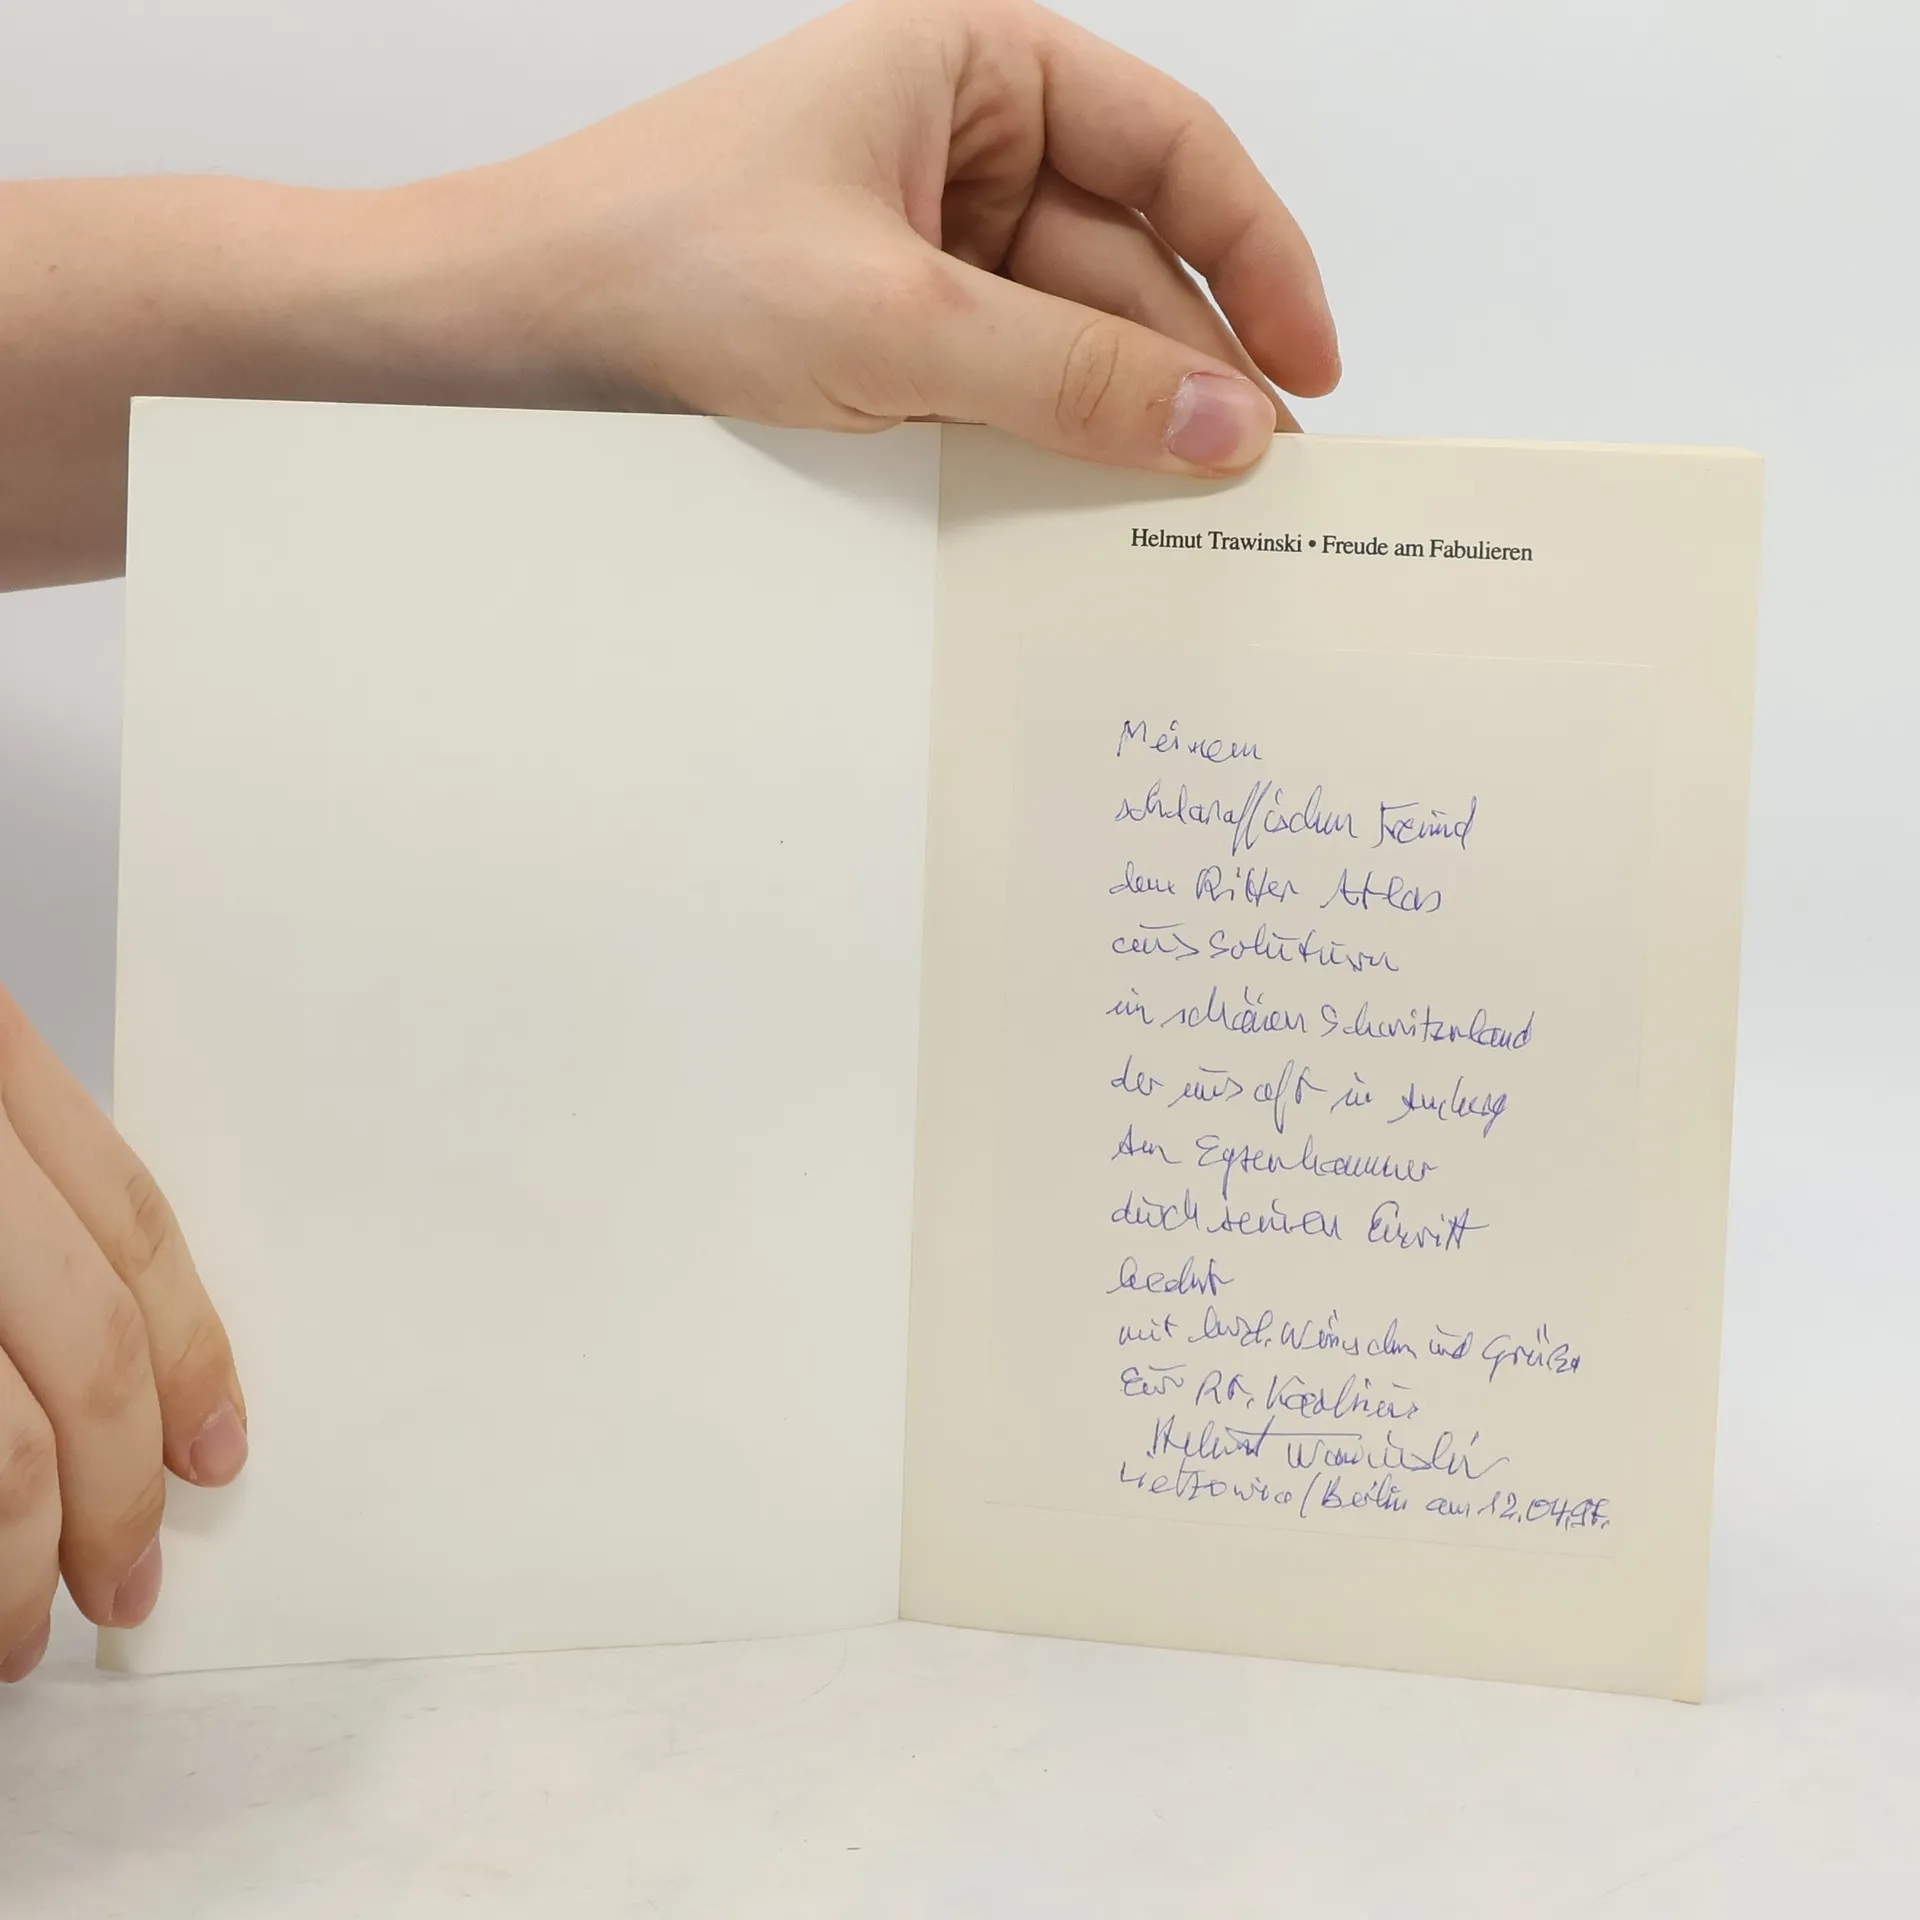 Helmut Trawinski • Freude am Fabulieren
Meinem
schlaraffischen Freund
dem Ritter Atlas
aus Soluturn
im schönen Schwitzerland
der uns oft in
am
durch seinen Einritt
beehrt
mit herzl. Wünschen und Grüßen
Eur Rt.
Helmut Trawinski
Lietzowia / Berlin am 12.04.97.